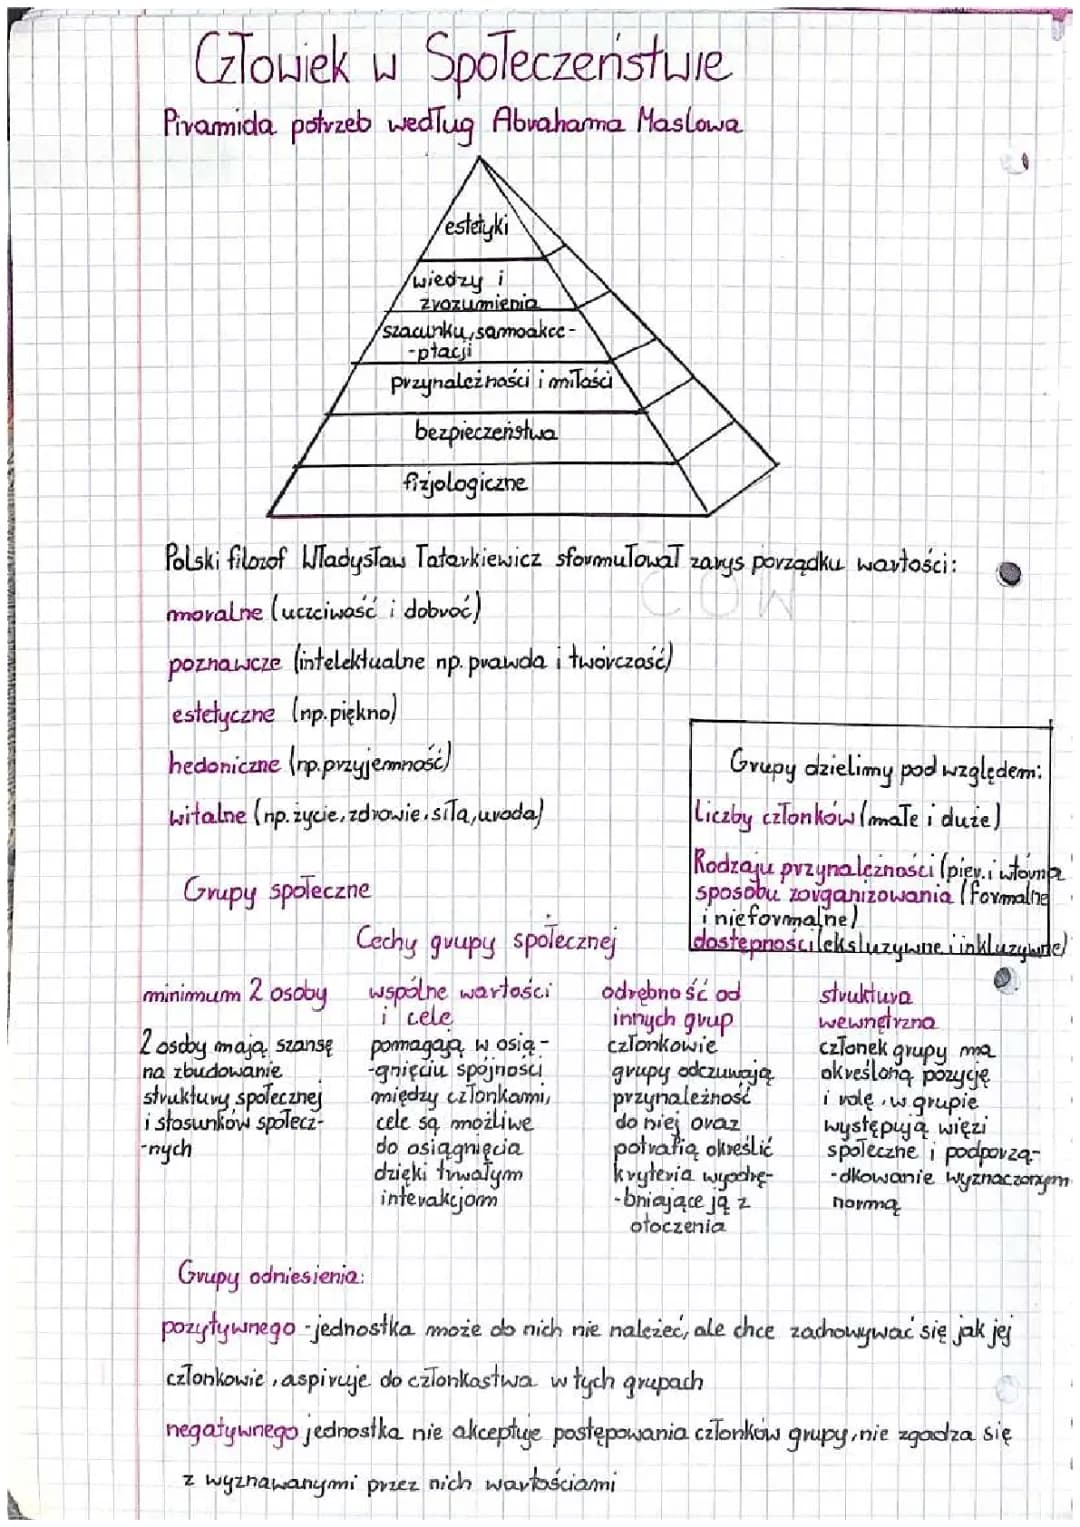 Człowiek w Społeczeństwie
Piramida potrzeb według Abrahama Maslowa
estetyki
wiedzy i
zrozumienia
szacunku, samoakce-
-ptacji
przynależności i miłości
bezpieczeństwa
fizjologiczne
Polski filozof Władysław Tatarkiewicz sformułował zarys porządku wartości:
moralne (uczciwość i dobroć)
poznawcze (intelektualne np. prawda i twórczość)
estetyczne (np. piękno)
hedoniczne (np. przyjemność)
witalne (np. życie, zdrowie, siła, uroda)
Grupy dzielimy pod względem:
Liczby członków (małe i duże)
Rodzaju przynależności (pier. i wtórna
sposobu zorganizowania (formalne
i nieformalne)
dostępności (eksluzywne i inkluzywne)
Grupy społeczne
Cechy grupy społecznej
minimum 2 osoby
2 osoby mają szansę
na zbudowanie
struktury społecznej
i stosunków społecz-
-nych
wspólne wartości
i cele
pomagają w osią-
-gnięciu spójności
między członkami,
cele są możliwe
do osiągnięcia
dzięki trwałym
interakcjom
odrębność od
innych grup
członkowie
grupy odczuwają
przynależność
do niej oraz
potrafią określić
kryteria wyodrę-
-bniające ją z
otoczenia
struktura
wewnętrzna
członek grupy ma
określoną pozycję
i rolę, w grupie
występują więzi
społeczne i podporzą-
-dkowanie wyznaczonym
normą
Grupy odniesienia:
pozytywnego - jednostka może do nich nie należeć, ale chce zachowywać się jak jej
członkowie, aspiruje do członkostwa w tych grupach
negatywnego jednostka nie akceptuje postępowania członków grupy, nie zgadza się
z wyznawanymi przez nich wartościami